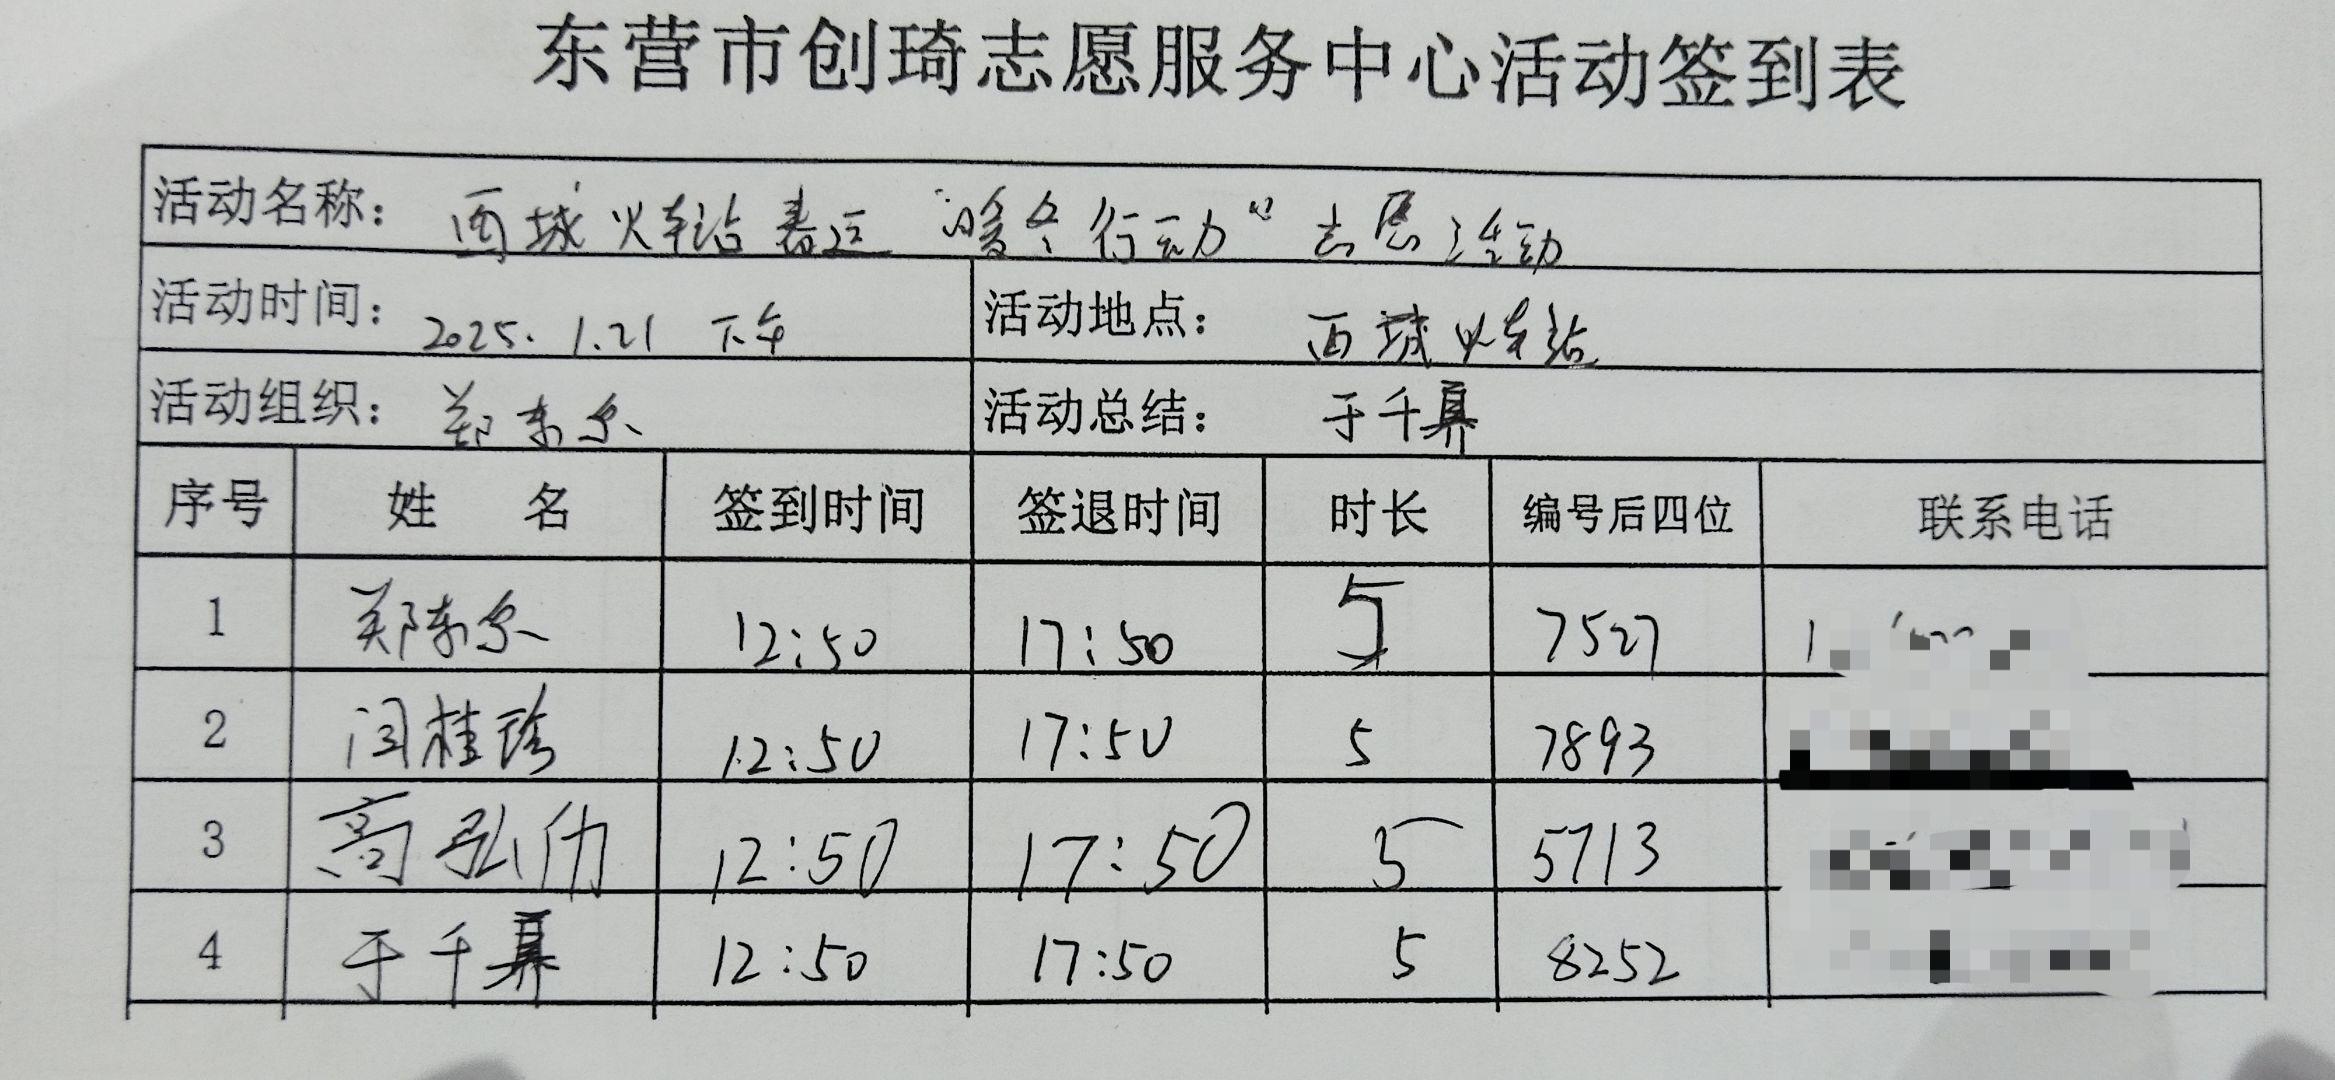 东营市创琦志愿服务中心活动签到表
活动名称： 西城火车站春运“暖冬行动”志愿活动
活动时间： 2025.1.21 下午 活动地点： 西城火车站
活动组织： 郑东泉 活动总结： 于千算
序号 姓 名 签到时间 签退时间 时长 编号后四位 联系电话
1 郑东泉 12:50 17:50 5 7527 1
2 闫桂珍 12:50 17:50 5 7893
3 高弘 12:50 17:50 5 5713
4 于千 12:50 17:50 5 8252